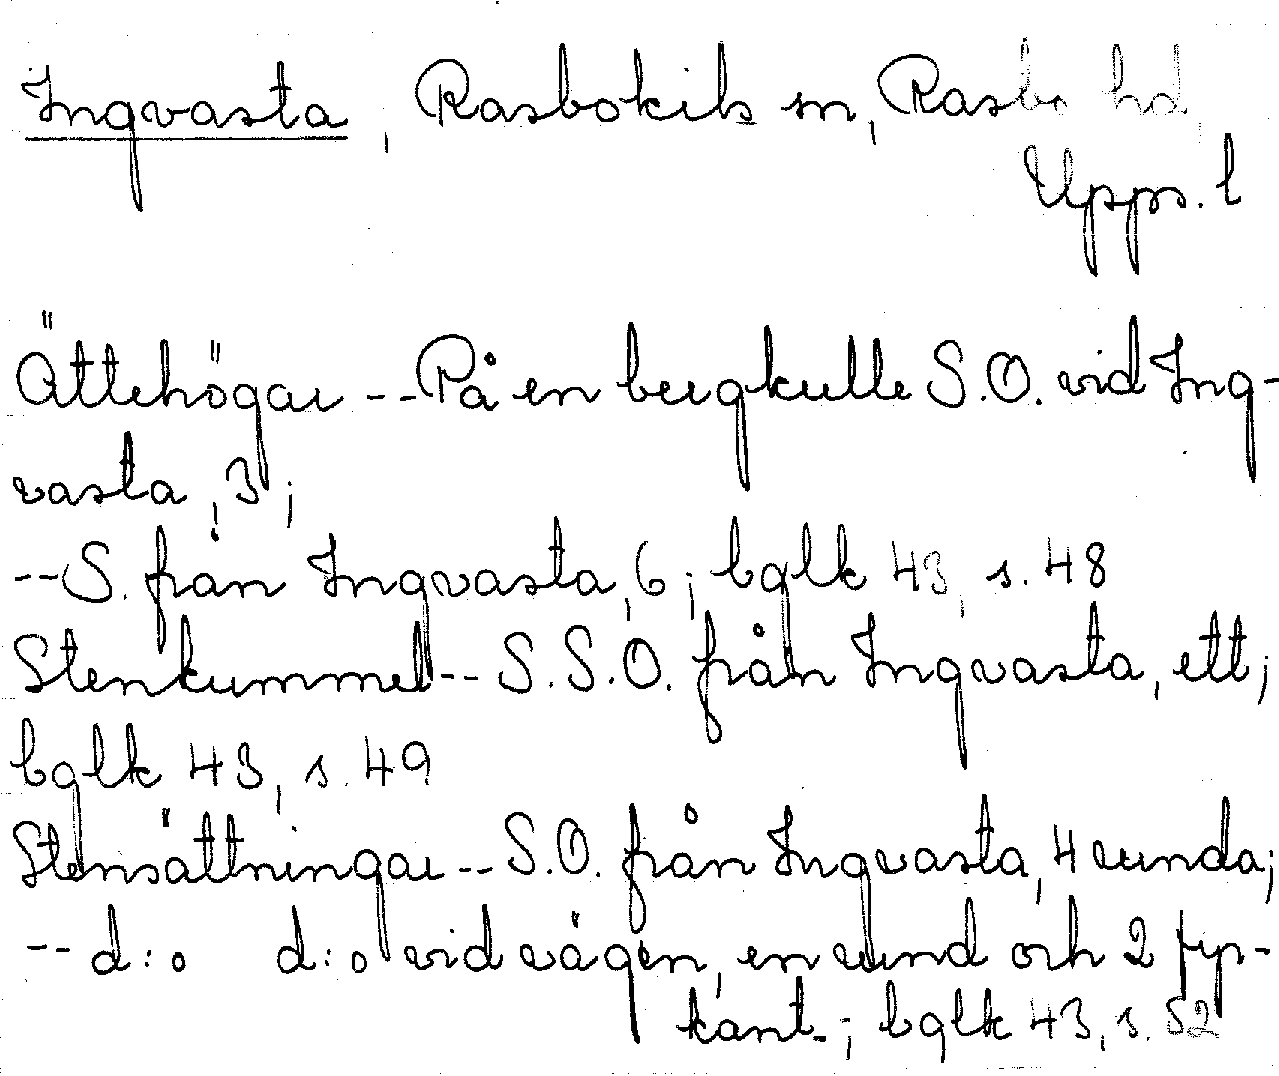 Ingvasta, Rasbokils sn, Rasbo hd,
Upps. l
Ättehögar -- På en bergkulle S.O. vid Ing-
vasta, 3;
-- S. från Ingvasta, 6; bglk 43, s. 48
Stenkummel -- S.S.O. från Ingvasta, ett;
bglk 43, s. 49
Stensättningar -- S.O. från Ingvasta, 4 runda;
-- d:o d:o vid vägen, en rund och 2 fyr-
kant.; bglk 43, s. 52